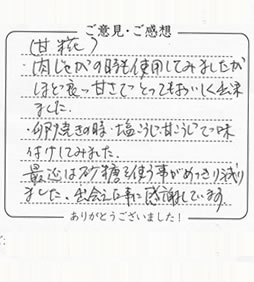 ご意見・ご感想
(甘糀)
・肉じゃがの時も使用してみましたが
ほど良い甘さで とってもおいしく出来
ました。
・卵焼きの時・塩こうじ甘こうじで味
付けしてみました。
最近は砂糖を使う事がめっきり減り
ました。出会えた事に感謝しています。
ありがとうございました!